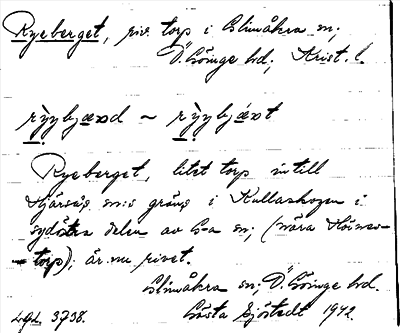 Ryeberget, riv. torp i Glimåkra sn;
Ö. Göinge hd; Krist. l.
rỳybjæ̀d ~ rỳybjæ̀t
Ryeberget, litet torp intill
Hjärsås sn:s gräns i Kullaskogen i
sydöstra delen av G-a sn; (nära Hörnes-
torp); är nu rivet.
Glimåkra sn; Ö. Göinge hd.
Lgl. 3738. Gösta Sjöstedt 1942.